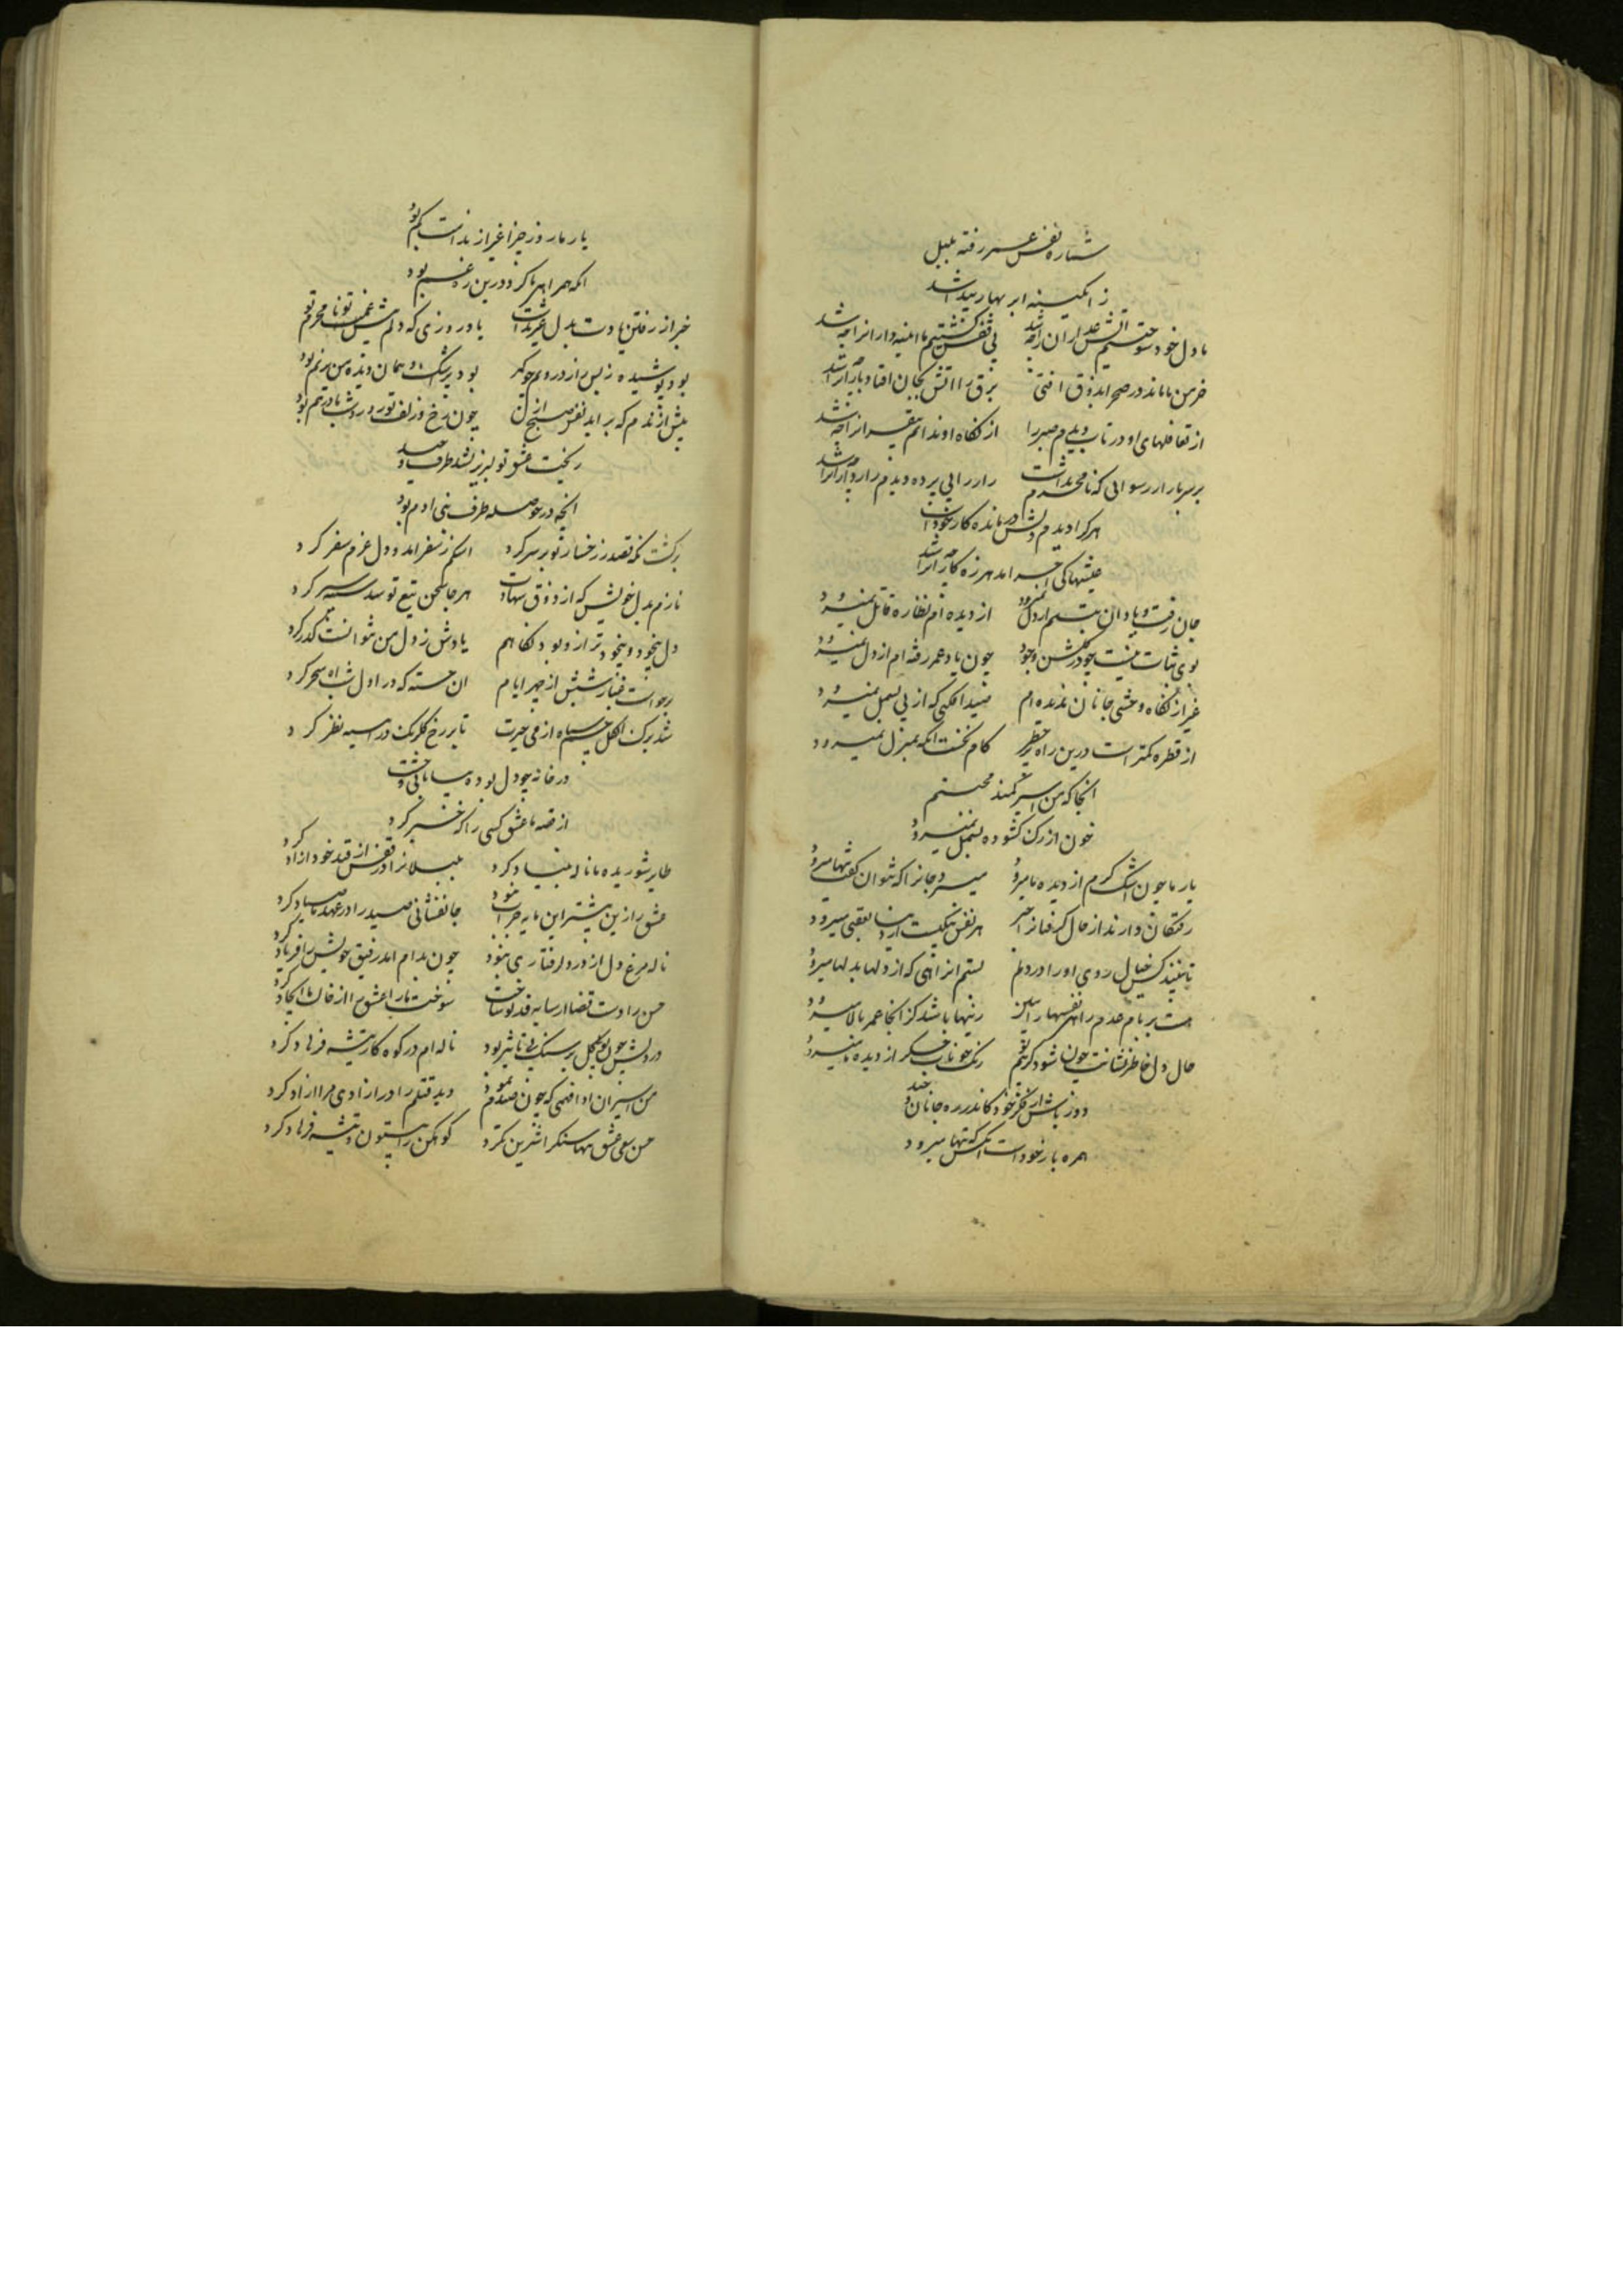 ستاره نفس عمر رفته بلبل
ز ابکینه ابر بهار پیدا شد
با دل خود سوختیم آتش عذاران را چه شد
بی قفس کشتیم ما امیدواران را چه شد
خرمن ما ماند در صحرا بذوق افتی
برق را آتش بجان افتاد باران را چه شد
از تغافلهای او در تاب دیدم صبر را
از نکاه او ندانم بیقراران را چه شد
بر سر بازار رسوایی که نامحرم نداشت
راز را بی پرده دیدم رازداران را چه شد
هر کرا دیدم دلش درمانده کار خود است
عیشها کی اخر امد هرزه کاران را چه شد
جان رفت و یاد ان بتسم از دل نمیرود
از دیده ام نظاره قاتل نمیرود
بوی ثبات نیست چو در کلشن وجود
چون یاد عمر رفته ام از دل نمیرود
غیر از نکاه وحشی جانان ندیده ام
صید افکنی که از پی بسمل نمیرود
از قطره کمتر است درین راه پر خطر
کام نخست انکه بمنزل نمیرود
انجا که من اسیر کمند محبتم
خون از رک کشوده بسمل نمیرود
یار ما چون اشک کرم از دیده ما میرود
میرود جانرا که نتوان کفت تنها میرود
رفتکان وارند از حال کرفتاران خبر
هر نفس پیکیست از دنیا بعقبی میرود
تا نبیند کس خیال روی او را در دلم
بستم انراهی که از دلها بدلها میرود
هست بر بام عدم راهی نفسها را
زینها باشد کز انجا عمر بالا میرود
حال دل خاطر نشانت چون شود کریم
رنک خوناب جکر از دیده ما میرود
دور باش از فکر خود کاندر ره جانان
همره بار خود است انکس که تنها میرود
یار ما روز جزا غیر از ندامت کم بود
انکه همراهی ما کرد درین ره غم بود
خبر از رفتن یادت بدل غیر نداشت
یاد روزی که دلم پیش غمت محرم بود
بود پوشیده ز بس راز درونم چو کهر
بود پر اشک و همان دیده من بی نم بود
پیش از ندم که براید نفس صبح ازل
چون رخ و زلف تو روز و شب ما در هم بود
ریخت عشق تو لبریز نشد ظرف وحید
انچه در حوصله ظرف بنی ادم بود
برکشت نکه قصد ز رخسار تو بر سر کرد
اشکم ز سفر امد و دل عزم سفر کرد
نازم بدل خویش که از ذوق شهادت
هر جا سخن تیغ تو شد سینه سپر کرد
دل بیخود و بیخودتر ازو بود نکاهم
یادش ز دل من نتوانست کذر کرد
برخواست غبار شبش از چهر ایام
ان خسته که در اول شب اه سحر کرد
شد برک کل چشم سیاه از می حیرت
تا بر رخ کلرنک در اسینه نظر کرد
در خانه چو دل بوده بیابانی وحشت
از قصه ما عشق کسی را که خبر کرد
طایر شوریده ما ناله بنیاد کرد
بلبلانرا در قفس از قید خود ازاد کرد
عشق را زین بیشتر این مایه خراب نبود
جانفشانی صید را در عهد ما صیاد کرد
ناله مرغ دل از درد کرفتاری نبود
چون بدام امد رفیق خویش را فریاد کرد
حسن را دست قضا از سایه قد تو ساخت
سوخت ما را عشق و از خاک ما ایجاد کرد
در دلش چون بر سنک بی تاثیر بود
ناله ام در کوه کار تیشه فرهاد کرد
من اسیر ان ادا فهمی که چون صیدم نمود
دید قتلم را در ازادی مرا ازاد کرد
حسن سعی عشق تنها سنک را شیرین نکرد
کوهکن را بیستون و تیشه فرهاد کرد